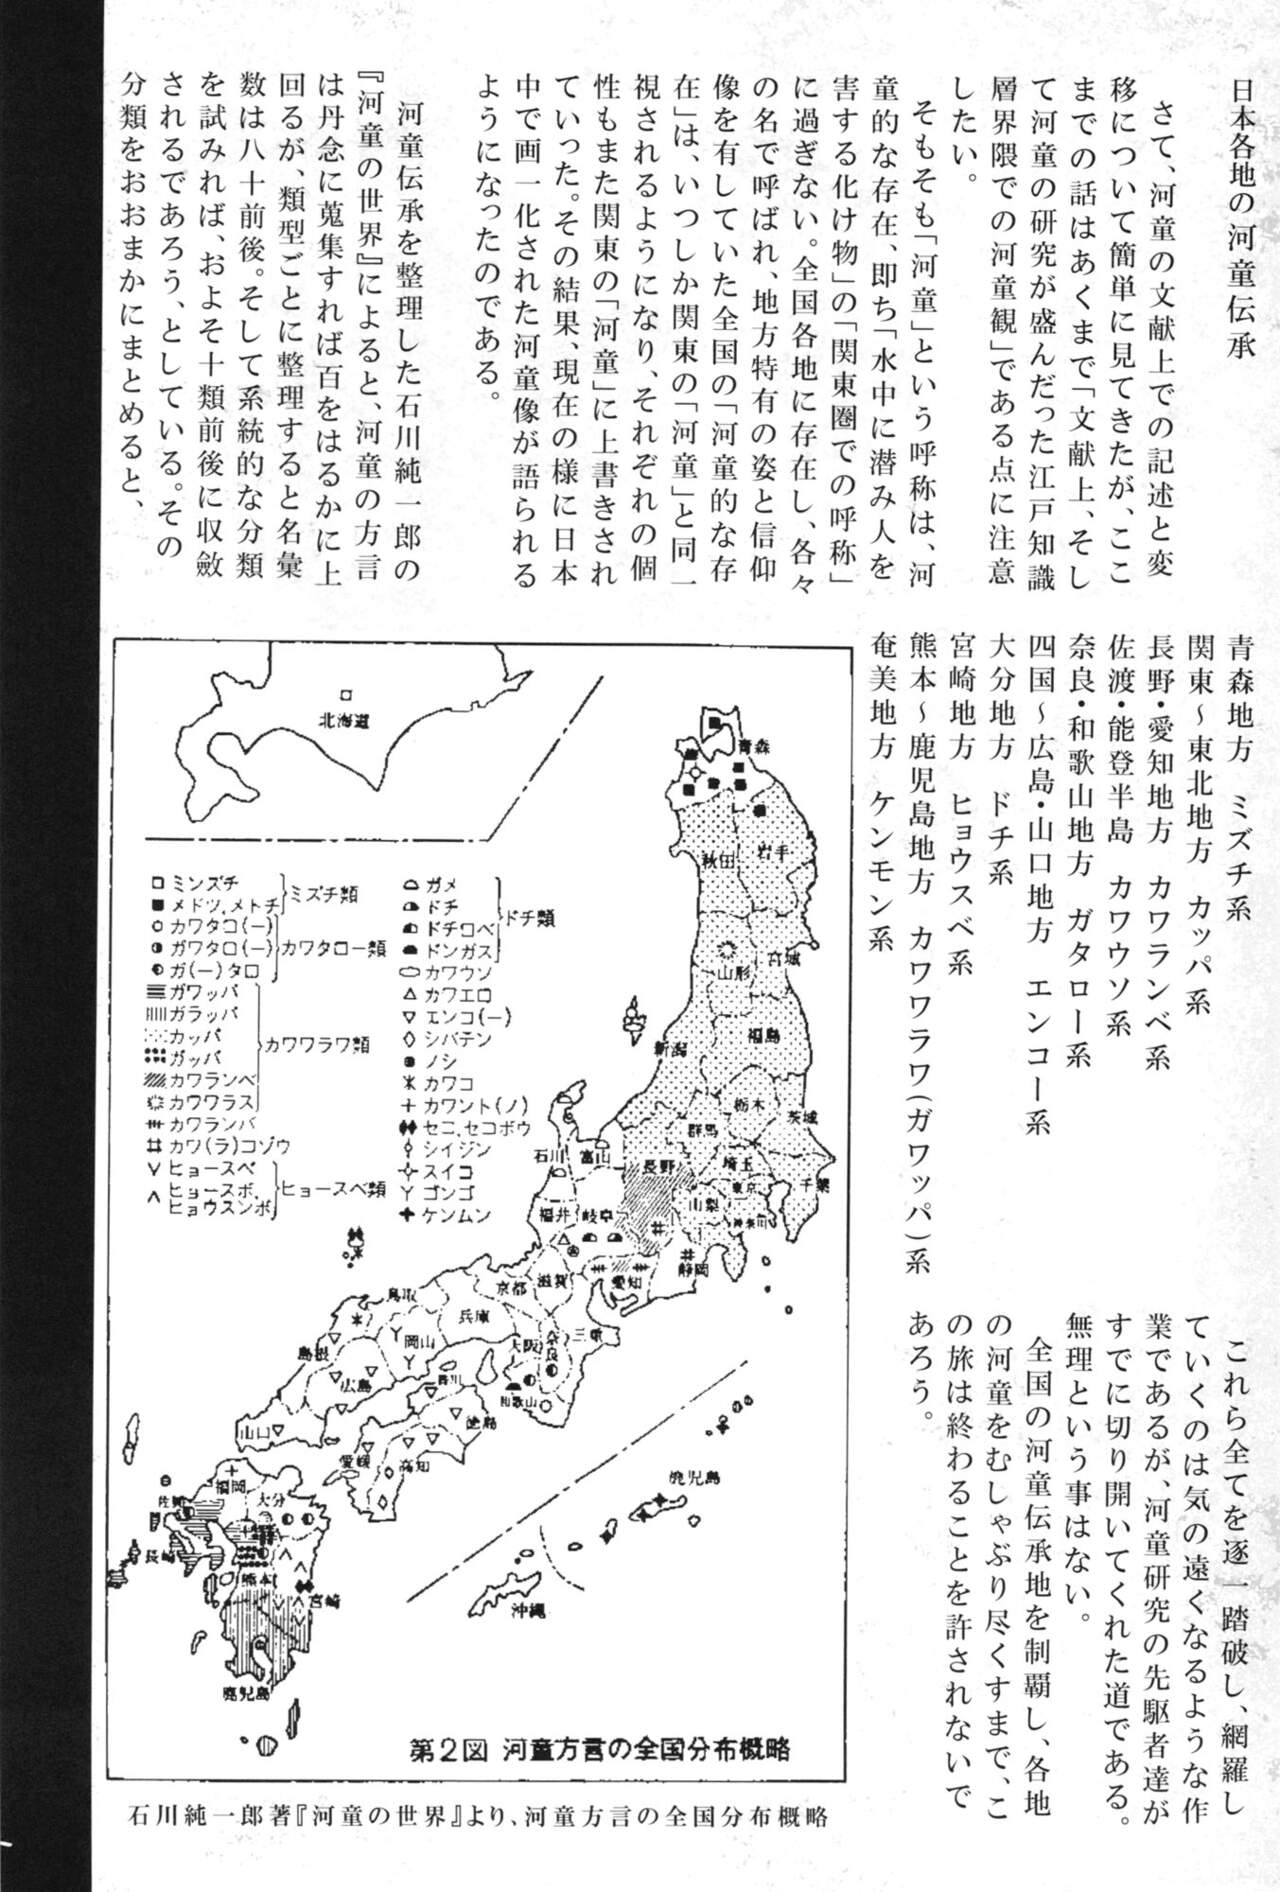 日本各地の河童伝承
さて、河童の文献上での記述と変
移について簡単に見てきたが、ここ
までの話はあくまで「文献上、そし
て河童の研究が盛んだった江戸知識
層界隈での河童観」である点に注意
したい。
そもそも「河童」という呼称は、河
童的な存在、即ち「水中に潜み人を
害する化け物」の「関東圏での呼称」
に過ぎない。全国各地に存在し、各々
の名で呼ばれ、地方特有の姿と信仰
像を有していた全国の「河童的な存
在」は、いつしか関東の「河童」と同一
視されるようになり、それぞれの個
性もまた関東の「河童」に上書きされ
ていった。その結果、現在の様に日本
中で画一化された河童像が語られる
ようになったのである。
河童伝承を整理した石川純一郎の
『河童の世界』によると、河童の方言
は丹念に蒐集すれば百をはるかに上
回るが、類型ごとに整理すると名彙
数は八十前後。そして系統的な分類
を試みれば、およそ十類前後に収斂
されるであろう、としている。その
分類をおおまかにまとめると、
青森地方 ミズチ系
関東〜東北地方 カッパ系
長野・愛知地方 カワランベ系
佐渡・能登半島 カワウソ系
奈良・和歌山地方 ガタロー系
四国〜広島・山口地方 エンコー系
大分地方 ドチ系
宮崎地方 ヒョウスベ系
熊本〜鹿児島地方 カワワラワ(ガワッパ)系
奄美地方 ケンモン系
これら全てを逐一踏破し、網羅し
ていくのは気の遠くなるような作
業であるが、河童研究の先駆者達が
すでに切り開いてくれた道である。
無理という事はない。
全国の河童伝承地を制覇し、各地
の河童をむしゃぶり尽くすまで、こ
の旅は終わることを許されないで
あろう。
北海道
青森
秋田
岩手
山形
宮城
新潟
福島
栃木
群馬
茨城
石川
富山
長野
埼玉
東京
千葉
山梨
神奈川
福井
岐阜
静岡
愛知
滋賀
京都
鳥取
兵庫
岡山
島根
広島
大阪
奈良
三重
香川
和歌山
山口
徳島
愛媛
高知
福岡
大分
佐賀
長崎
熊本
宮崎
鹿児島
鹿児島
沖縄
ミンズチ
メドツ、メトチ
ミズチ類
カワタコ(ー)
ガワタロ(ー)
ガ(ー)タロ
カワタロー類
ガワッパ
ガラッパ
カッパ
ガッパ
カワランベ
カワワラス
カワワラワ類
カワランバ
カワ(ラ)コゾウ
ヒョースベ
ヒョースボ、
ヒョウスンボ
ヒョースベ類
ガメ
ドチ
ドチロベ
ドンガス
ドチ類
カワウソ
カワエロ
エンコ(ー)
シバテン
ノシ
カワコ
カワント(ノ)
セコ、セコボウ
シイジン
スイコ
ゴンゴ
ケンムン
第2図 河童方言の全国分布概略
石川純一郎著『河童の世界』より、河童方言の全国分布概略